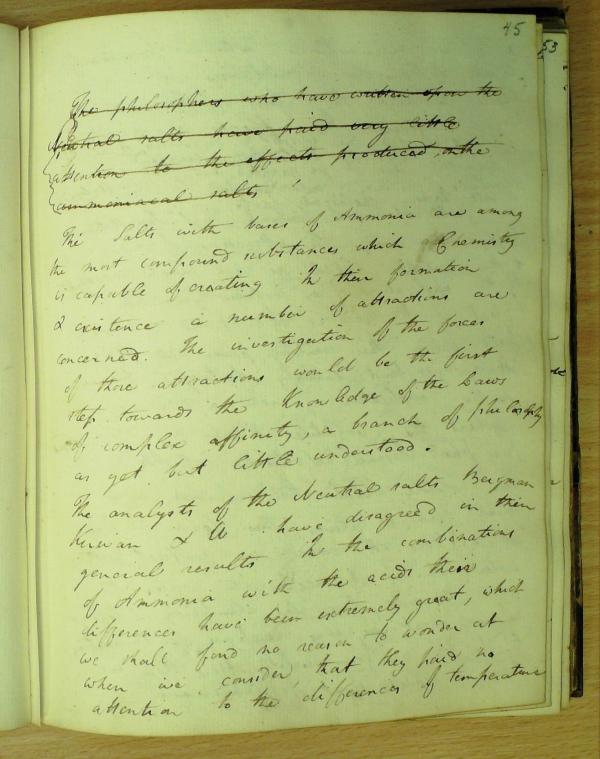 45
53
The philosophers who have written upon the
Neutral salts have paid very little
attention to the effects produced on the
ammoniacal salts
The Salts with bases of Ammonia are among
the most compound substances which Chemistry
is capable of creating In their formation
& existence a number of attractions are
concerned. The investigation of the forces
of these attractions would be the first
step towards the Knowledge of the Laws
of complex affinity, a branch of philosophy
as yet but little understood.
The analysts of the Neutral salts Bergman
Kirwan & W have disagreed in their
general results In the combinations
of Ammonia with the acids their
differences have been extremely great, which
we shall find no reason to wonder at
when we consider that they paid no
attention to the differences of temperature